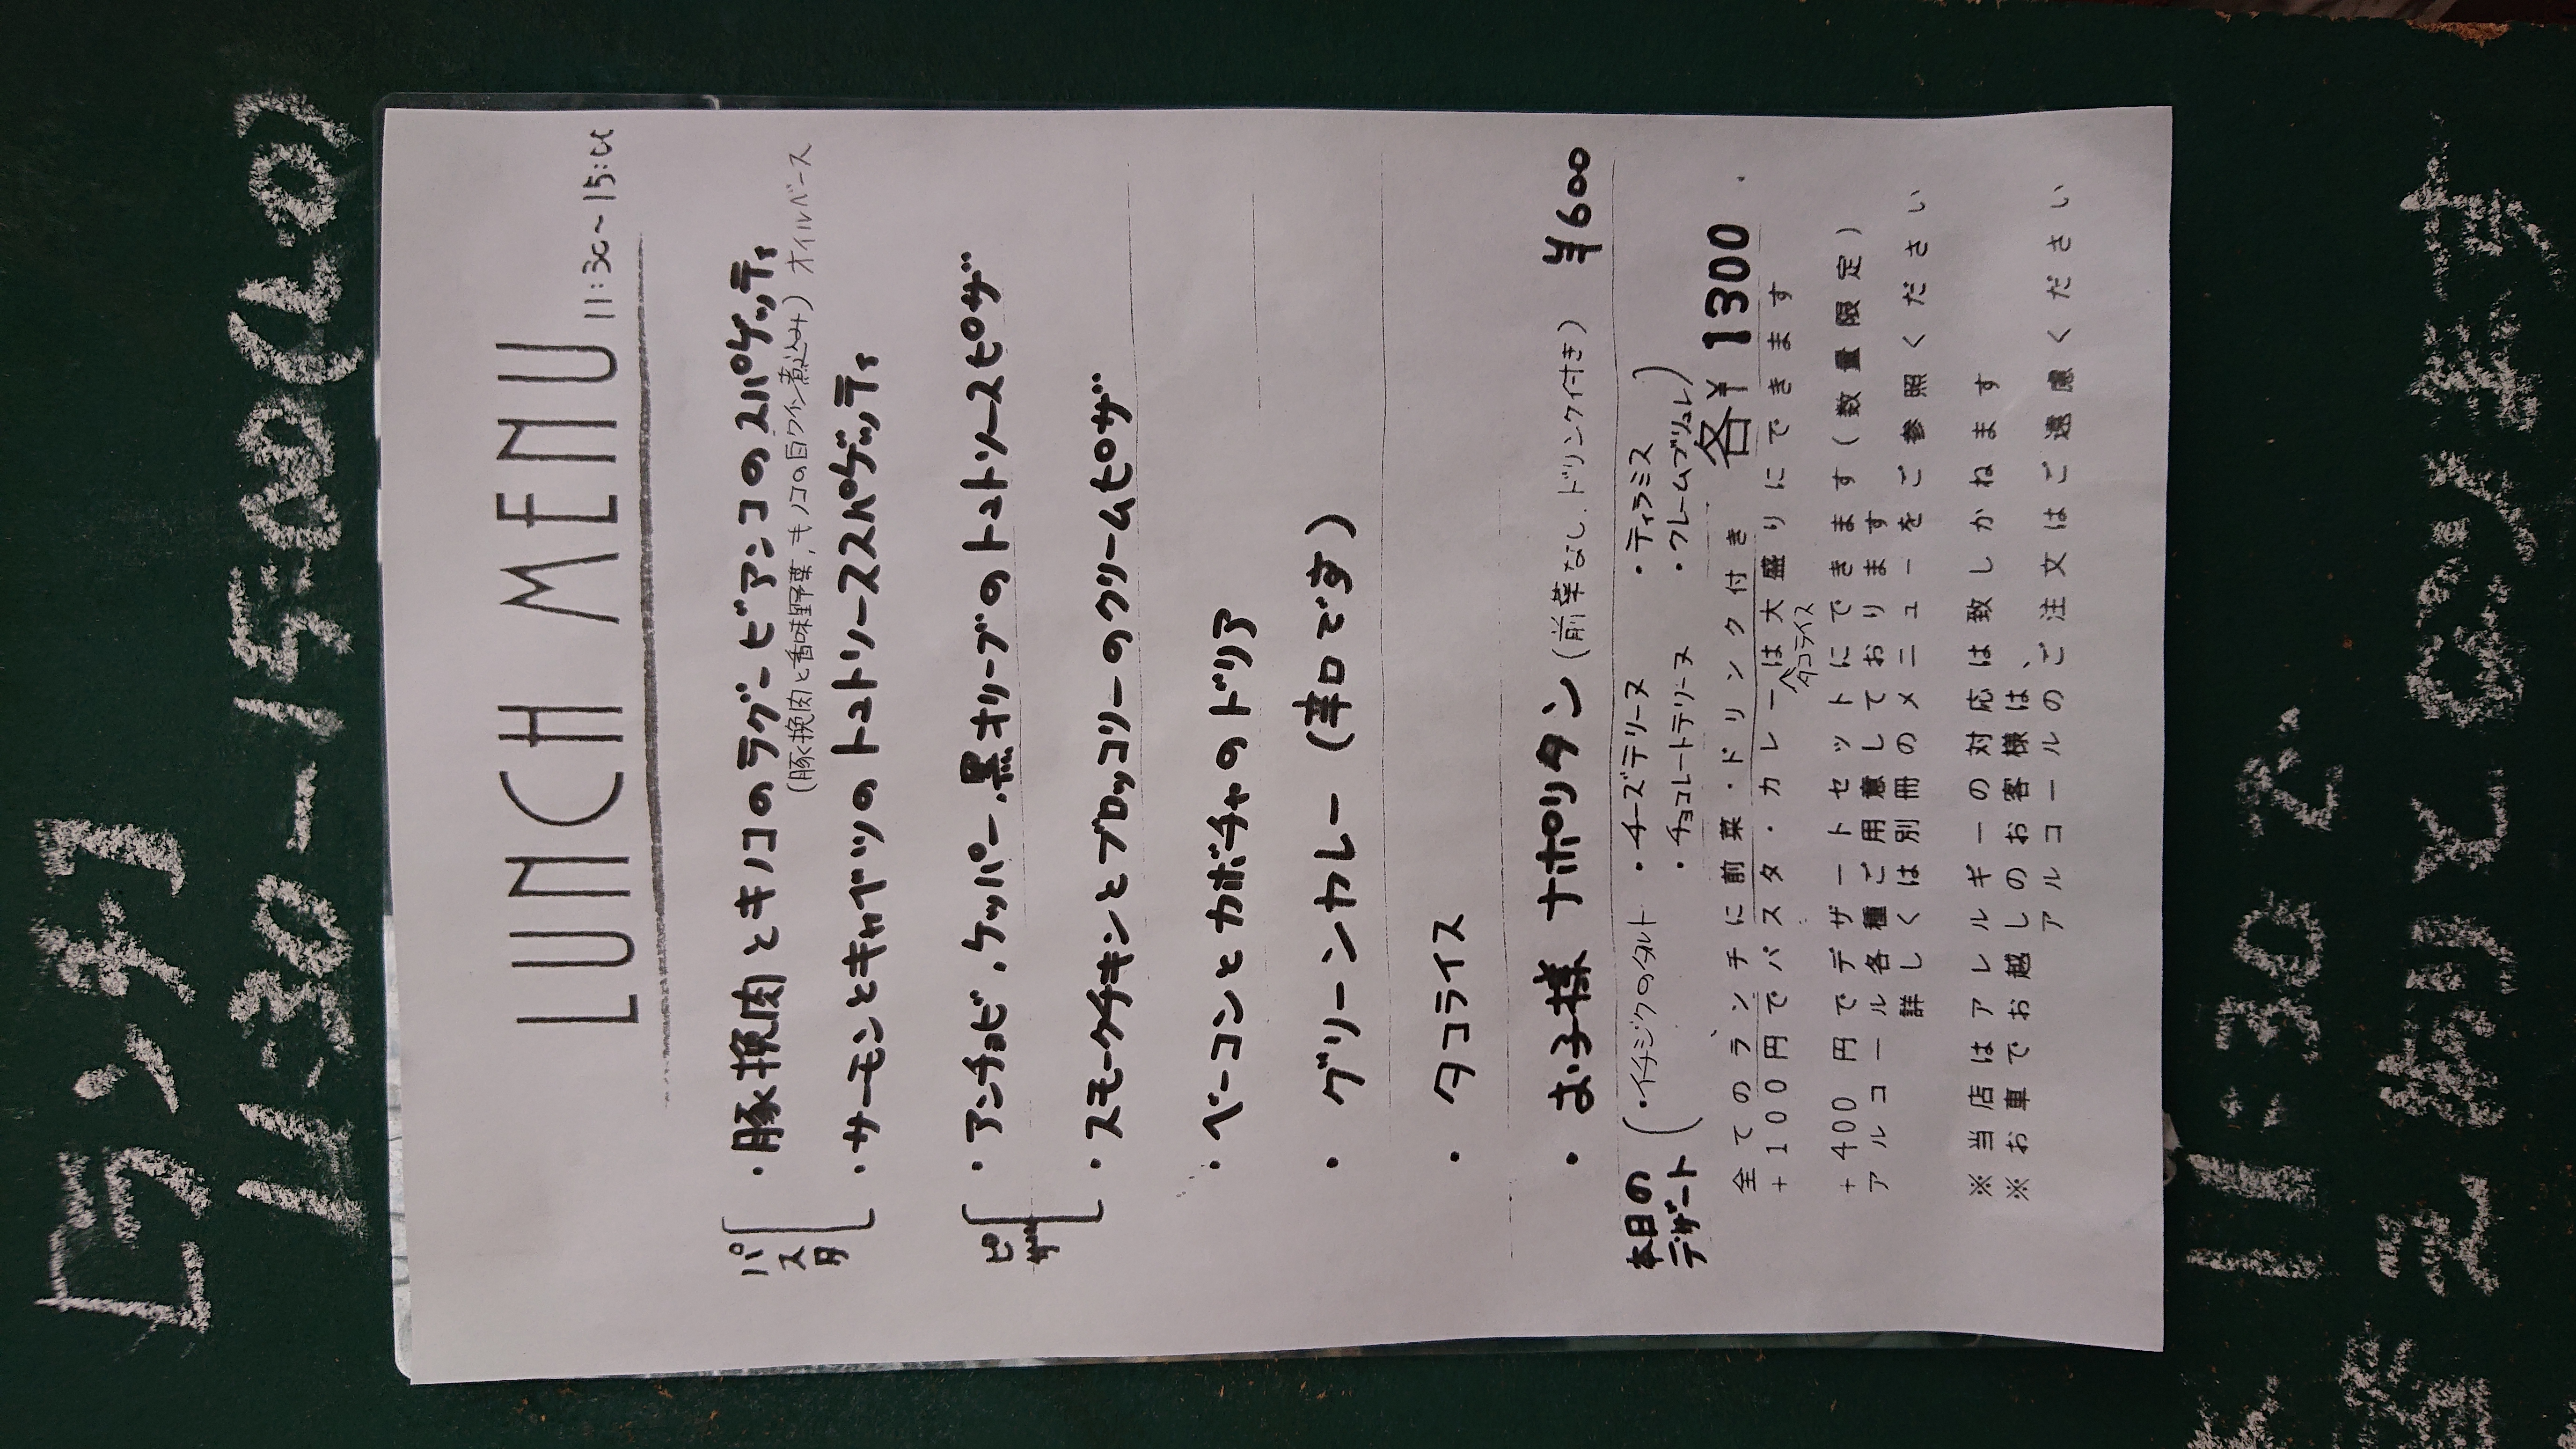 ランチ
11:30-15:00(L.O)
LUNCH MENU
11:30~15:00
パスタ
・豚挽肉とキノコのラグービアンコのスパゲッティ
(豚挽肉と香味野菜,キノコの白ワイン煮込み)オイルベース
・サーモンとキャベツのトマトソーススパゲッティ
ピザ
・アンチョビ、ケッパー、黒オリーブのトマトソースピザ
・スモークチキンとブロッコリーのクリームピザ
・ベーコンとカボチャのドリア
・グリーンカレー(辛口です)
・タコライス
・お子様ナポリタン(前菜なし.ドリンク付き) ¥600
本日のデザート
(・イチジクのタルト ・チーズテリーヌ ・ティラミス
・チョコレートテリーヌ ・クレームブリュレ)
全てのランチに前菜・ドリンク付き 各¥1300
+100円でパスタ・カレーは大盛りにできます
タコライス
+400円でデザートセットにできます(数量限定)
アルコール各種ご用意しております
詳しくは別冊のメニューをご参照ください
※当店はアレルギーの対応は致しかねます
※お車でお越しのお客様は、
アルコールのご注文はご遠慮ください
11:30で